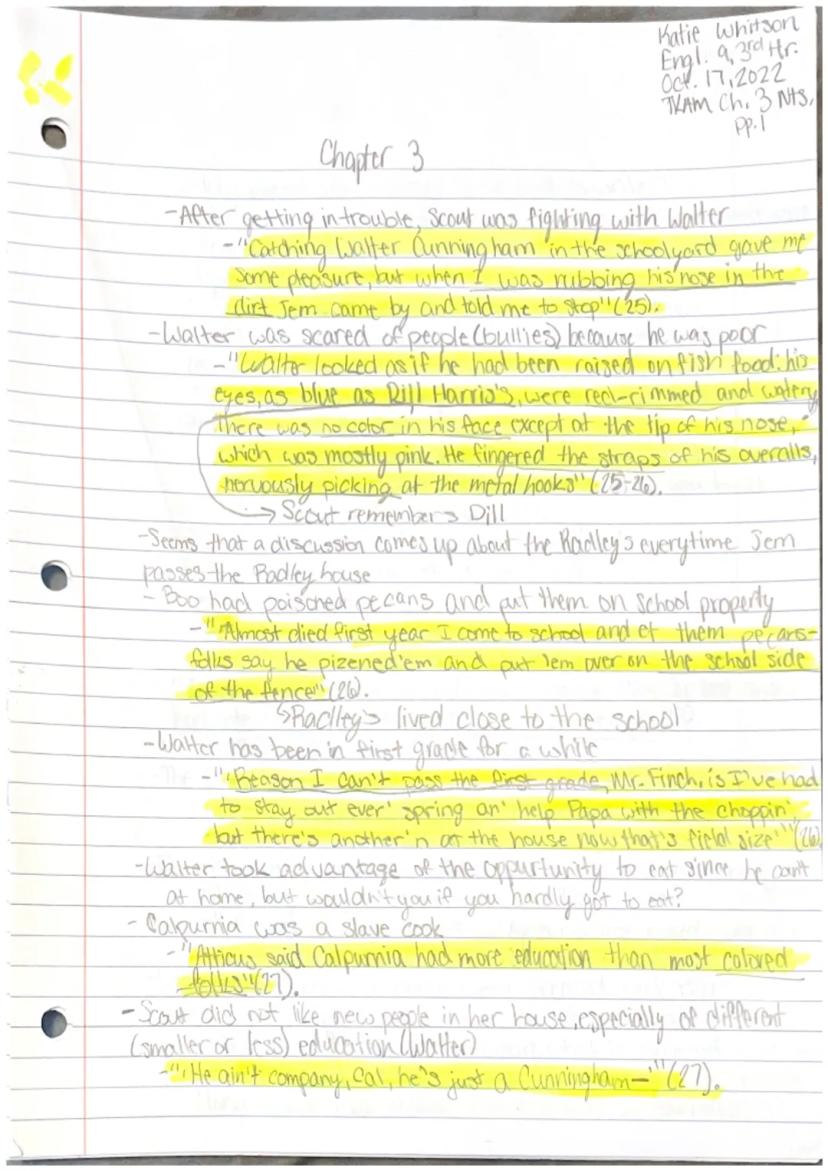 Katie Whitson
Engl. 9, 3rd Hr.
Oct. 17, 2022
TKAM Ch. 3 Nts,
pp. 1
Chapter 3
-After getting in trouble, Scout was fighting with Walter
-"Catching Walter Cunningham in the schoolyard gave me
some pleasure, but when I was rubbing his nose in the
dirt Jem came by and told me to stop" (25).
-Walter was scared of people (bullies) because he was poor
-"Walter looked as if he had been raised on fish food: his
eyes, as blue as Dill Harris's, were red-rimmed and watery
there was no color in his face except at the tip of his nose,
which was mostly pink. He fingered the straps of his overalls,
nervously picking at the metal hooks" (25-26).
→ Scout remembers Dill
-Seems that a discussion comes up about the Radley's everytime Jem
passes the Radley house
- Boo had poisoned pecans and put them on school property
-"Almost died first year I come to school and et them pecans-
folks say he pizened 'em and put 'em over on the school side
of the fence" (26).
↳Radley's lived close to the school
-Walter has been in first grade for a while
-"'Reason I can't pass the first grade, Mr. Finch, is I've had
to stay out ever' spring an' help Papa with the choppin'
but there's another'n at the house now that's field size'" (26)
-Walter took advantage of the oppurtunity to eat since he can't
at home, but wouldn't you if you hardly got to eat?
- Calpurnia was a slave cook
-"Atticus said Calpurnia had more education than most colored
folks" (27).
- Scout did not like new people in her house, especially of different
(smaller or less) education (Walter)
-"'He ain't company, Cal, he's just a Cunningham-'" (27).